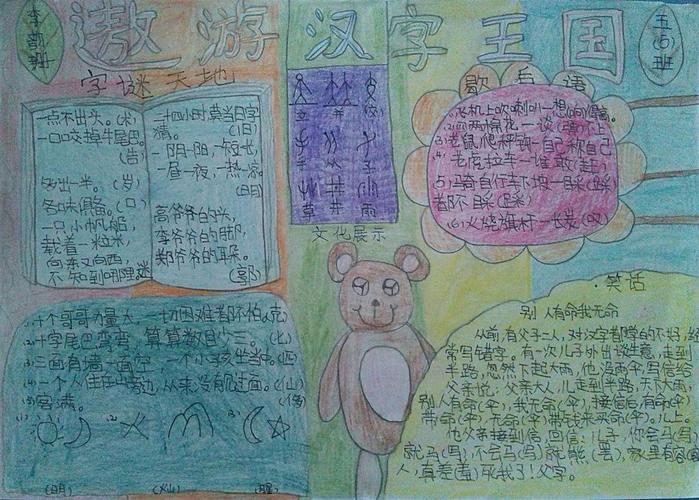 遨游汉字王国
五(6)班
字谜天地
一点不出头。
一口咬掉牛尾巴。
(告)
多出一半。(岁)
各味俱备。(口)
一只小帆船,
载着一粒米,
不知到哪里。
二十四小时莫当日字
猜。(旧)
一阴一阳,一短一长,
一昼一夜,一热一凉。
(明)
高爷爷的头,
李爷爷的脚,
郑爷爷的耳朵。
(郭)
(1)十个哥哥力量大,一切困难都不怕。(克)
(2)十字尾巴弯弯,算算数目少三。(七)
(3)三面有墙一面空,一个小孩坐当中。(匹)
(4)一个人住在山旁边,从来没有见过面。(仙)
(5)客满。(侈)
(1)
(2)
(3)
(明)
(灿)
(醒)
立
并
从
子
草
井
雨
文化展示
歇后语
(2)两棉花一谈(弹)不上
(3)老鼠爬秤顶一自己称自己
(4)老虎拉车一谁敢(赶)
(5)马奇自行车下坡一自采(踩)
都不自采(踩)
(6)火烧旗杆一长炭(叹)
笑话
别人有命我无命
从前,有父子二人,对汉字都学的不好,经
常写错字。有一次儿子外出谈生意,走到
半路,忽然下起大雨,他没雨伞,写信给
父亲说:父亲大人,儿走到半路,下大雨,
别人有命(伞),我无命(伞),接信后,有命(伞)
带命(伞),无命(伞)带钱来买命(伞)。儿上。
他父亲接到信,回信:儿子,你会马(写)
就马(写),不会马(写)就熊(罢),家里有客
人,真差(羞)死我了!父字。